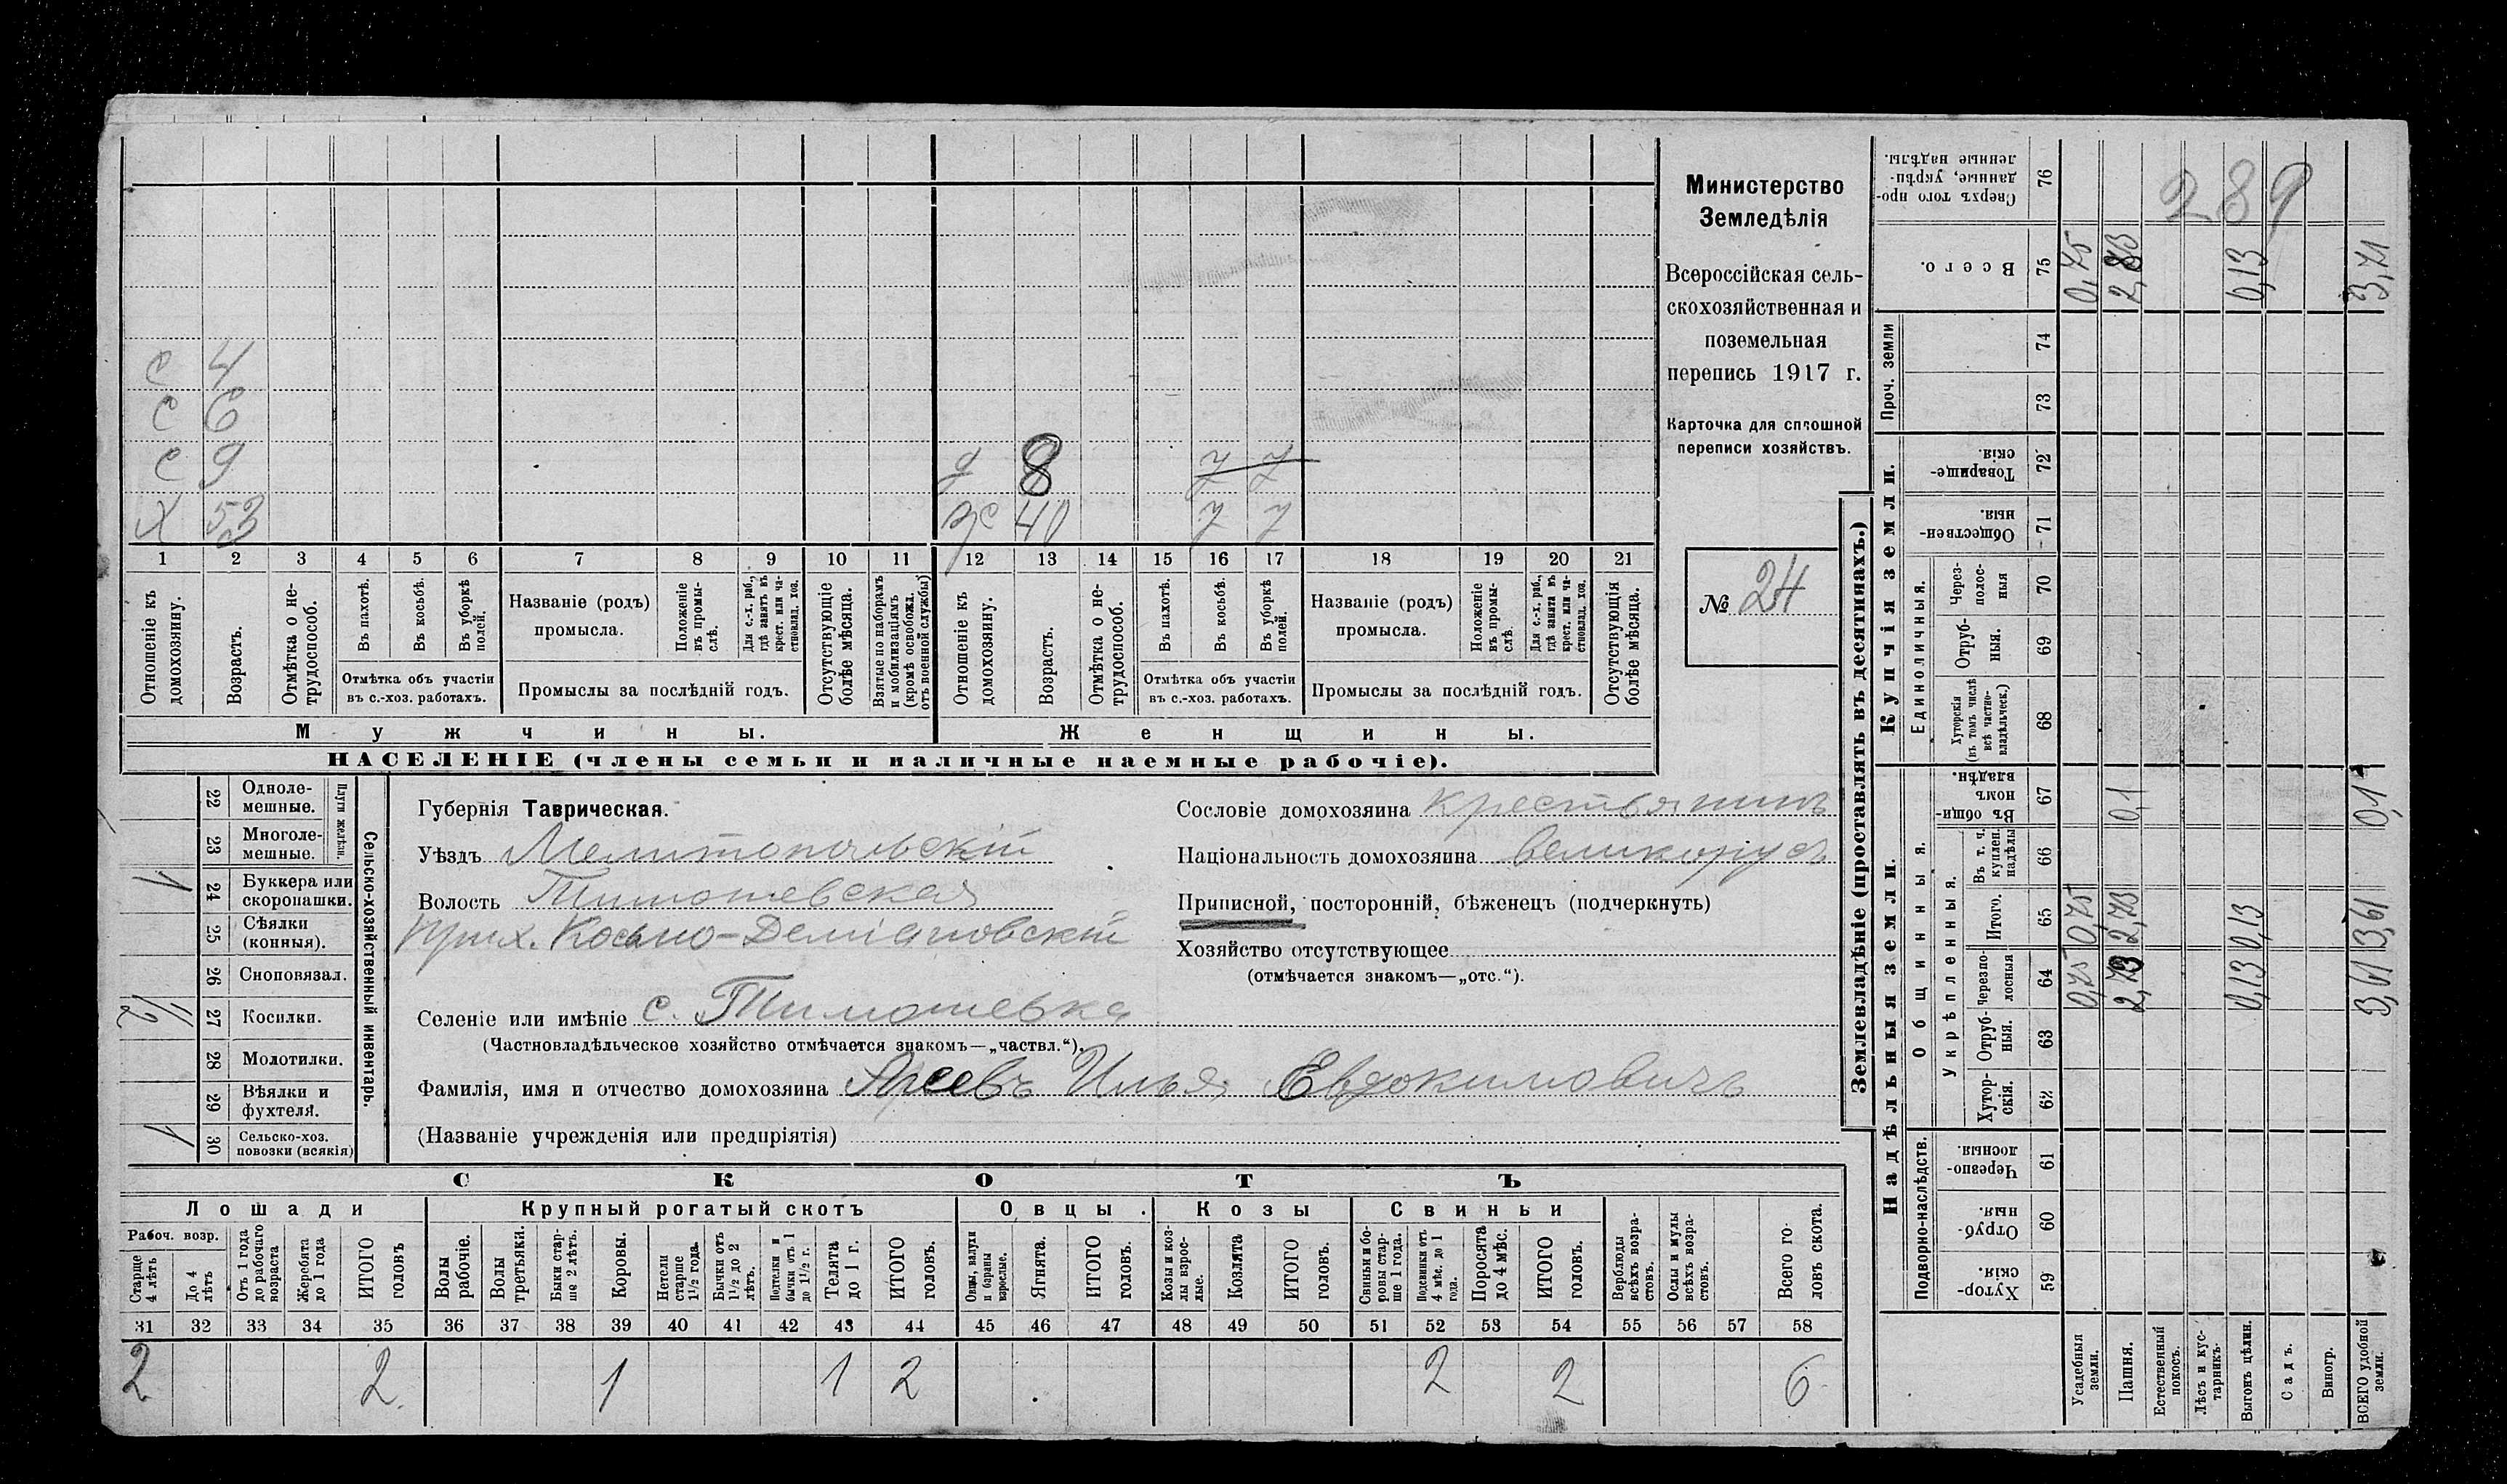 с 4
с 6
с 9 д 8 7 7
х 53 ж 40 7 7
1 2 3 4 5 6 7 8 9 10 11 12 13 14 15 16 17 18 19 20 21
Отношеніе къ домохозяину.
Возрастъ.
Отмѣтка о не-трудоспособ.
Въ пахотѣ.
Въ косьбѣ.
Въ уборкѣ полей.
Отмѣтка объ участіи
въ с.-хоз. работахъ.
Названіе (родъ)
промысла.
Положеніе въ промы-слѣ.
Для с.-х. раб., гдѣ занятъ въ крест. или ча-стновлад. хоз.
Промыслы за послѣдній годъ.
Отсутствующіе болѣе мѣсяца.
Взятые по наборамъ и мобилизаціямъ (кромѣ освобожд. отъ военной службы)
Отношеніе къ домохозяину.
Возрастъ.
Отмѣтка о не-трудоспособ.
Въ пахотѣ.
Въ косьбѣ.
Въ уборкѣ полей.
Отмѣтка объ участіи
въ с.-хоз. работахъ.
Названіе (родъ)
промысла.
Положеніе въ промы-слѣ.
Для с.-х. раб., гдѣ занята въ крест. или ча-стновлад. хоз.
Промыслы за послѣдній годъ.
Отсутствующія болѣе мѣсяца.
Мужчины.
Женщины.
НАСЕЛЕНІЕ (члены семьи и наличные наемные рабочіе).
Министерство
Земледѣлія
Всероссійская сель-
скохозяйственная и
поземельная
перепись 1917 г.
Карточка для сплошной
переписи хозяйствъ.
№ 24
Сельско-хозяйственный инвентарь.
Плуги желѣзн.
22 Одноле-мешные.
23 Многоле-мешные.
1 24 Буккера или скоропашки.
25 Сѣялки (конныя).
26 Сноповязал.
1/2 27 Косилки.
28 Молотилки.
29 Вѣялки и фухтеля.
1 30 Сельско-хоз. повозки (всякія)
Губернія Таврическая.
Уѣздъ Мелитопольскій
Волость Тимошевская
Прих. Космо-Деміановскій
Селеніе или имѣніе с. Тимошевка
(Частновладѣльческое хозяйство отмѣчается знакомъ—„частвл.“).
Фамилія, имя и отчество домохозяина Арсевъ Илья Евдокимовичъ
(Названіе учрежденія или предпріятія)
Сословіе домохозяина крестьянинъ
Національность домохозяина великорусъ
Приписной, посторонній, бѣженецъ (подчеркнуть)
Хозяйство отсутствующее
(отмѣчается знакомъ—„отс.“).
СКОТЪ
Лошади Крупный рогатый скотъ Овцы. Козы Свиньи
Рабоч. возр.
Старше 4 лѣтъ
До 4 лѣтъ
Отъ 1 года до рабочаго возраста
Жеребята до 1 года
ИТОГО головъ
Волы рабочіе.
Волы третьяки.
Быки стар-ше 2 лѣтъ.
Коровы.
Нетели старше 1½ года.
Бычки отъ 1½ до 2 лѣтъ.
Подтелки и бычки отъ 1 до 1½ г.
Телята до 1 г.
ИТОГО головъ.
Овцы, валухи и бараны взрослые.
Ягнята.
ИТОГО головъ.
Козы и коз-лы взрос-лые.
Козлята
ИТОГО головъ.
Свиньи и бо-ровы стар-ше 1 года.
Подсвинки отъ 4 мѣс. до 1 года.
Поросята до 4 мѣс.
ИТОГО головъ.
Верблюды всѣхъ возра-стовъ.
Ослы и мулы всѣхъ возра-стовъ.
Всего го-ловъ скота.
31 32 33 34 35 36 37 38 39 40 41 42 43 44 45 46 47 48 49 50 51 52 53 54 55 56 57 58
2 2 1 1 2 2 2 6
Землевладѣніе (проставлять въ десятинахъ.)
Надѣльныя земли.
Купчія земли.
Проч. земли
Подворно-наслѣдств.
Общинныя.
Укрѣпленныя.
Единоличныя.
Сверхъ того про-данные, укрѣп-ленные надѣлы. 76 289
Всего. 75 0,75 2,83 0,13 3,71
74
73
Товарище-скія. 72
Обществен-ныя. 71
Через-полос-ныя 70
Отруб-ныя. 69
Хуторскія (въ томъ числѣ всѣ частно-владѣльческ.) 68
Въ общи-номъ владѣн. 67 0,1 0,1
Въ т. ч. куплен. надѣлы 66
Итого. 65 0,75 2,73 0,13 3,61
Черезпо-лосныя 64 0,75 2,73 0,13 3,61
Отруб-ныя. 63
Хутор-скія. 62
Черезпо-лосныя. 61
Отруб-ныя. 60
Хутор-скія. 59
Усадебныя земли.
Пашня.
Естественный покосъ.
Лѣсъ и кус-тарникъ.
Выгонъ цѣлин.
Садъ.
Виногр.
ВСЕГО удобной земли.